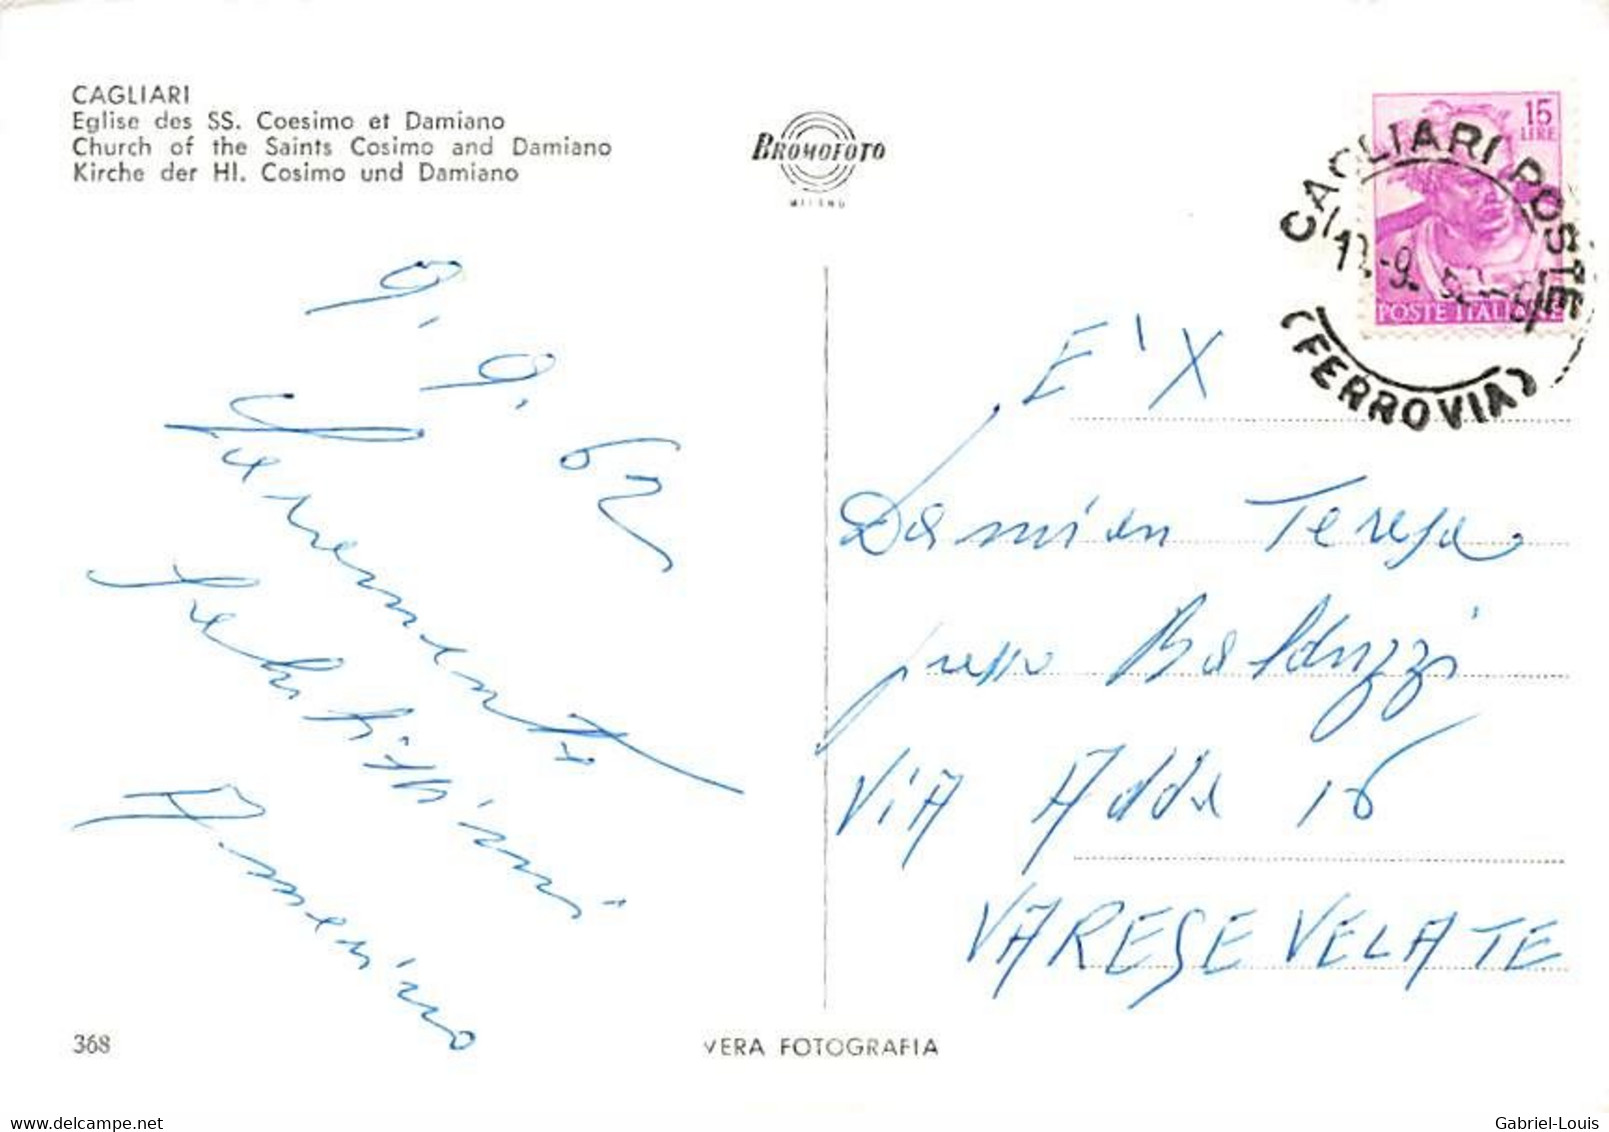 CAGLIARI
Eglise des SS. Coesimo et Damiano
Church of the Saints Cosimo and Damiano
Kirche der Hl. Cosimo und Damiano
BROMOFOTO
MILANO
15
LIRE
POSTE ITALIANE
CAGLIARI POSTE
(FERROVIA)
9.9.62
Saluti
E' X
Damian Teresa
Balduzzi
VIA Adda 16
VARESE VELATE
368
VERA FOTOGRAFIA
Gabriel-Louis
delcampe.net